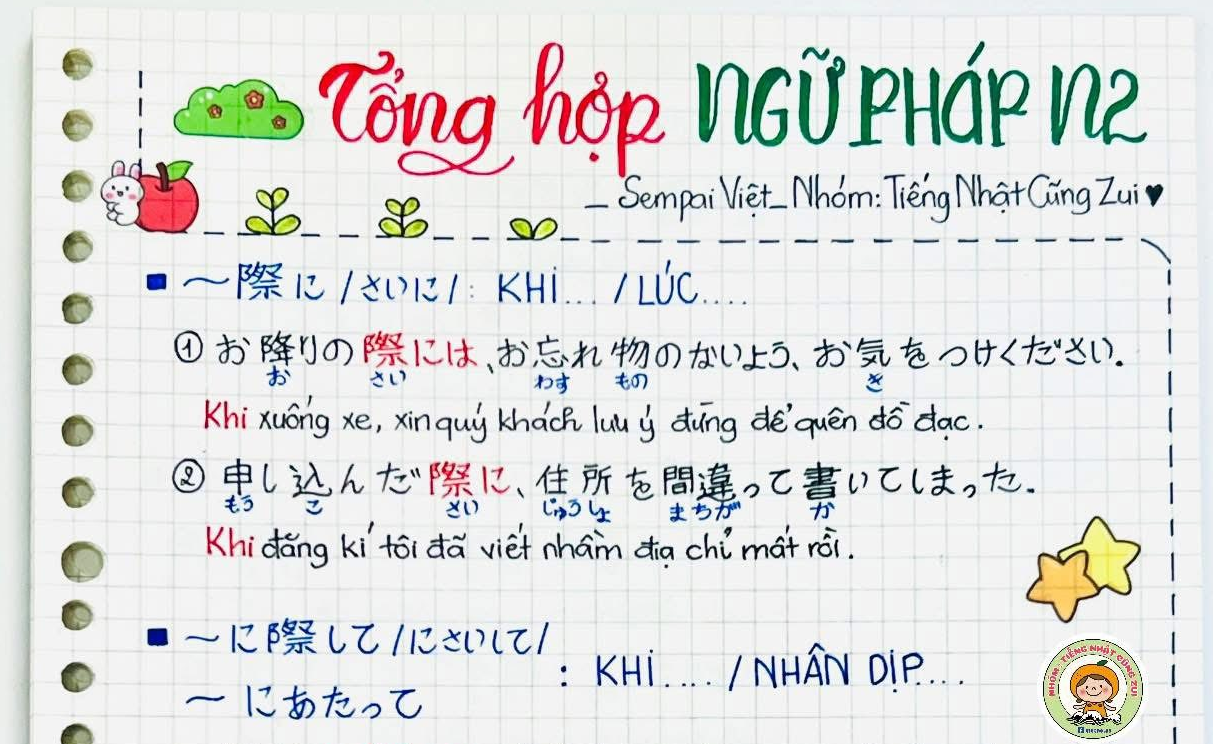 Tổng hợp NGỮ PHÁP N2
_ Sempai Việt_ Nhóm: Tiếng Nhật Cũng Zui ♥
■ ～際に /さいに/: KHI... / LÚC....
① お降りの際には、お忘れ物のないよう、お気をつけください.
お さい わす もの き
Khi xuống xe, xin quý khách lưu ý đừng để quên đồ đạc.
② 申し込んだ際に、住所を間違って書いてしまった.
もう こ さい じゅうしょ まちが か
Khi đăng kí tôi đã viết nhầm địa chỉ mất rồi.
■ ～に際して /にさいして/
～にあたって
: KHI.... / NHÂN DỊP....
NHÓM: TIẾNG NHẬT CŨNG ZUI